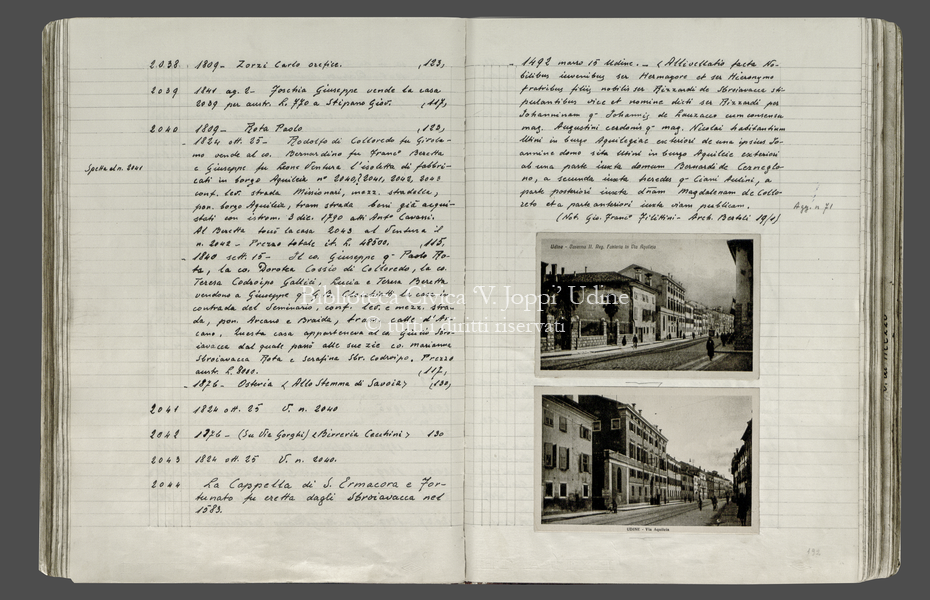 2038 1809 - Zorzi Carlo orefice. (123,
2039 1841 ag. 2 - Joschia Giuseppe vende la casa
2039 per austr. L. 770 a Stipano Giov. (117,
2040 1809 - Rota Paolo (123,
- 1824 ott. 25 - Rodolfo di Colloredo fu Girola-
mo vende al co. Bernardino fu Franc.º Beretta
e Giuseppe fu Leone Ventura l'isolotto di fabbri-
Spetta al n. 2041
cati in borgo Aquileia nº 2040, 2041, 2042, 2043
conf. lev. strada Missionari, mezz. stradella,
pon. borgo Aquileia, tram. strada beni già acqui-
stati con istrom. 3 dic. 1790 atti Ant.º Cavassi.
Al Beretta toccò la casa 2043 al Ventura il
n. 2042 - Prezzo totale it. L. 48500. (115,
- 1840 sett. 15 - Il co. Giuseppe q. Paolo Ro-
ta, la co. Dorotea Cossio di Colloredo, la co.
Teresa Codroipo Gallici, Lucia e Teresa Beretta
vendono a Giuseppe la casa in
contrada del Seminario, conf. lev. e mezz. stra-
da, pon. Arcano e Braida, tram. calle d'Ar-
cano. Questa casa apparteneva al co. Giulio Sbro-
iavacca dal quale passò alle sue zie co. Marianna
Sbroiavacca Rota e Serafina Sbr. Codroipo. Prezzo
austr. L. 8000. (117,
- 1876 - Osteria «Allo Stemma di Savoia» (130,
2041 1824 ott. 25 V. n. 2040
2042 1876 - (Su Via Gorghi) «Birreria Cecchini» 130
2043 1824 ott. 25 V. n. 2040.
2044 La Cappella di S. Ermacora e For-
tunato fu eretta dagli Sbroiavacca nel
1583.
- 1492 marzo 15 Udine. - «Allivellatio facta No-
bilibus iuvenibus ser Hermagore et ser Hieronymo
fratribus filiis nobilis ser Rizzardi de Sbroiavacca sti-
pulantibus vice et nomine dicti ser Rizzardi per
Johanninam q. Johannis de Lauzacco cum consensu
mag. Augustini cerdonis q. mag. Nicolai habitantium
Utini in burgo Aquilegiae exteriori de una ipsius Jo-
annine domo sita Utini in burgo Aquileie exteriori
ab una parte iuxta domum Bernardi de Cerneglo-
no, a secunda iuxta heredes q. Ciani Aulini, a
parte posteriori iuxta dnam Magdalenam de Collo-
reto et a parte anteriori iuxta viam publicam.
(Not. Gio. Franc.º Filittini - Arch. Bertoli 19/1)
Agg. n. 71
Udine - Caserma R. Reg. Fanteria in Via Aquileia
UDINE - Via Aquileia
Biblioteca Civica 'V. Joppi' Udine
© tutti i diritti riservati
192